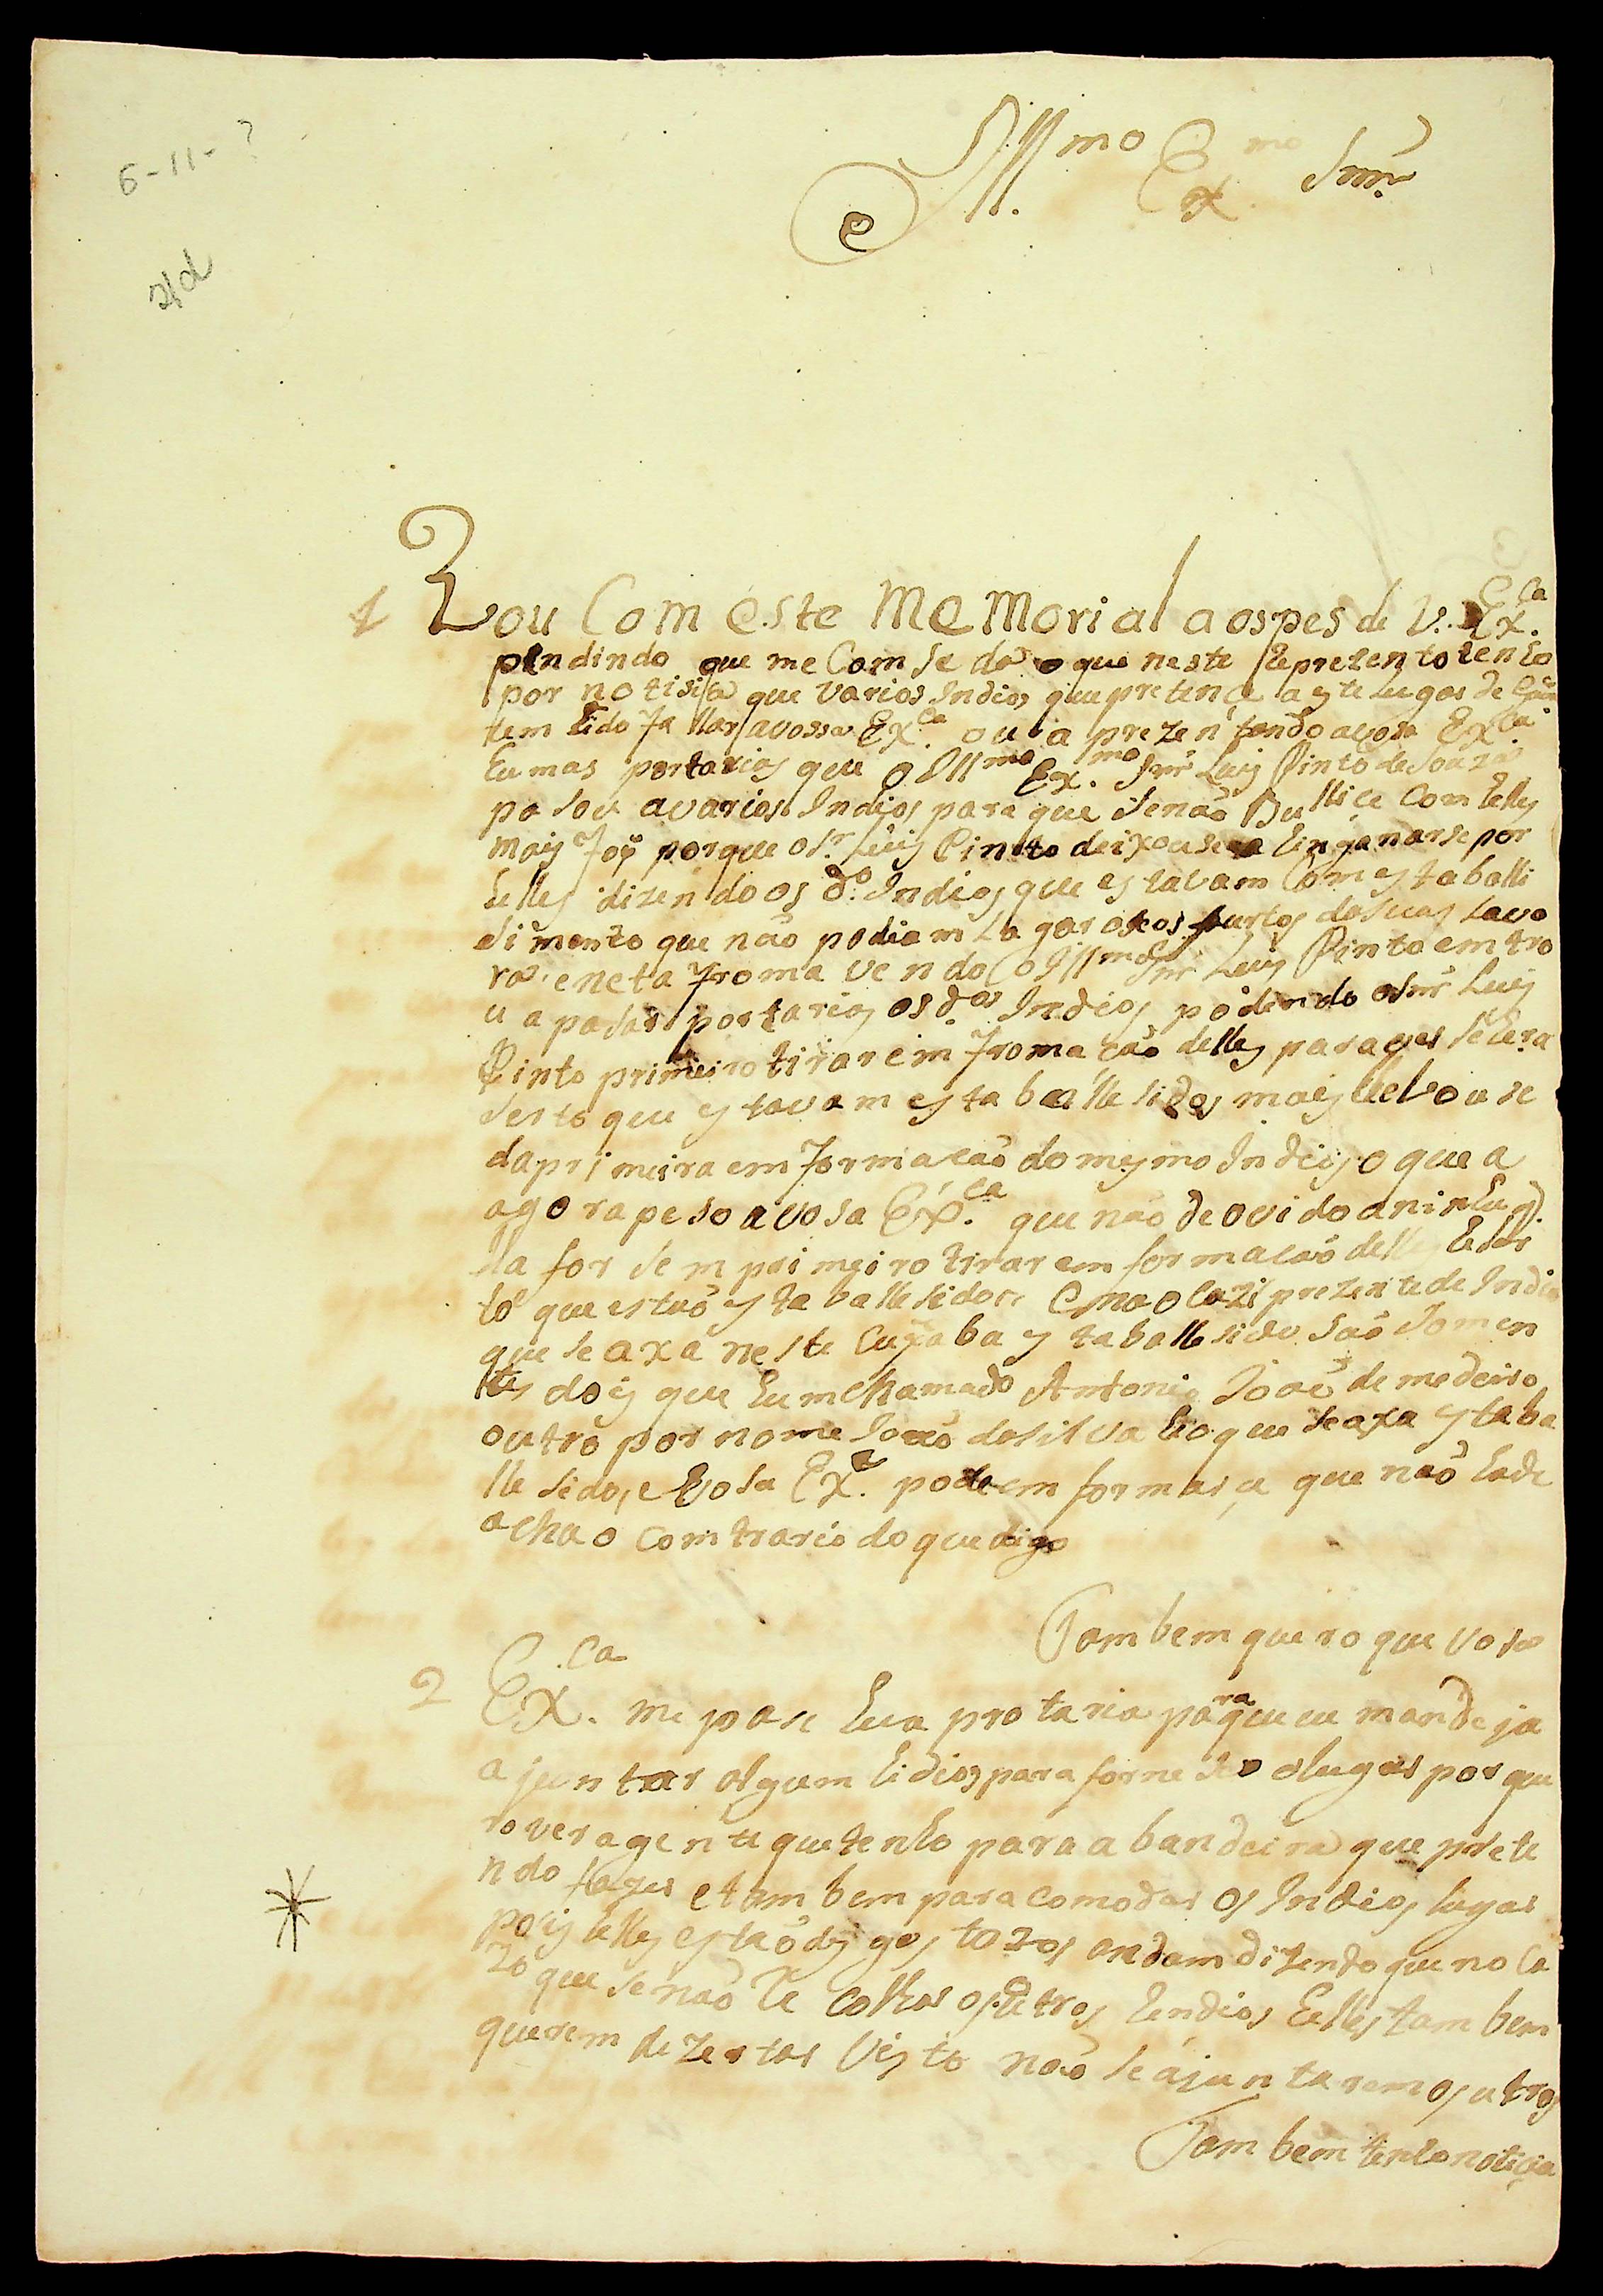 6-11-?
Ill.mo Ex.mo Snr.
1 Vou Com este MeMorial aos pes de V. Ex.ca
pindindo que me Com seda o que neste Reprezento tenho
por notisia que varios Indios que pretença a este lugar de
tem hido fallar a vossa Ex.ca ou a prezentando avosa Ex.ca
humas portarias que o Illmo Ex.mo Snr Luis Pinto de Souza
pasou avarios Indios para que senão Bullise Com elles
mais foy porque o Sr. Luis Pinto deixouse enganarse por
helles dizendo os d.os Indios que estavam Com estaballi
simento que não podiam Lagar os furtos dasuas Lavo
ras, e nesta froma vendo o Illmo Snr Luis Pinto emtro
u a pasar portarias os d.os Indios podendo o Snr Luis
Pinto primeiro tirar em fromação delles para ver se hera
serto que estavam estaballesidos mais levouse
da primeira em formacão do mesmo Indios o que a
agora peso a vosa Ex.ca que não de ovido a ninhu
la for sem primeiro tirar em formacão delles he ser
to que estão estaballesidos. Cmao cazi prezente de Indios
que se axa neste Cuyaba estaballesido são somen
tes dois que hum chamado Antonio João de medeiro
outro por nome João da silva he o que se axa estaba
llesido, e Vosa Ex.ca pode em formarse que não hade
acha o comtrario do que digo
Tambem quero que vosa
2 Ex.ca me pase hua protaria para que eu mande ja
ajuntar algum Lidios para forneser o lugar por que
ro ver a gente que tenho para a bandeira que prete
ndo fazer e tambem para comodar os Indios lugar
pois elles estão desgostozos andam dizendo que no Ca
zo que se não Recolhar os outros Lendios helles tambem
querem dezertar Visto não se ajuntarem os utros
Tambem tenho noticia